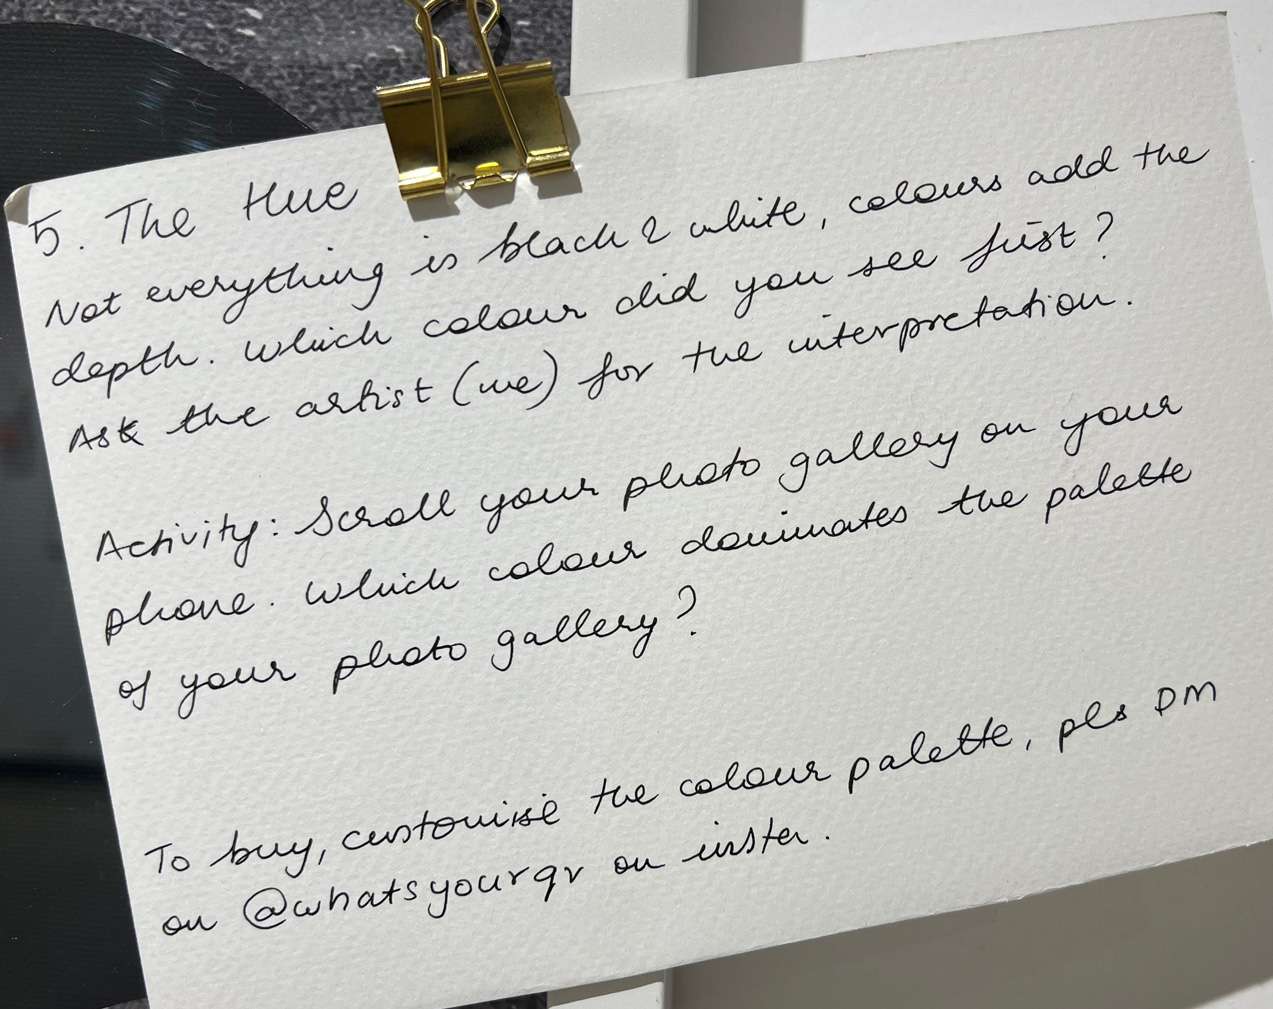 5. The Hue
Not everything is black & white, colours add the
depth. Which colour did you see first?
Ask the artist (me) for the interpretation.
Activity: Scroll your photo gallery on your
phone. Which colour dominates the palette
of your photo gallery?
To buy, customise the colour palette, pls DM
on @whatsyourqr on insta.